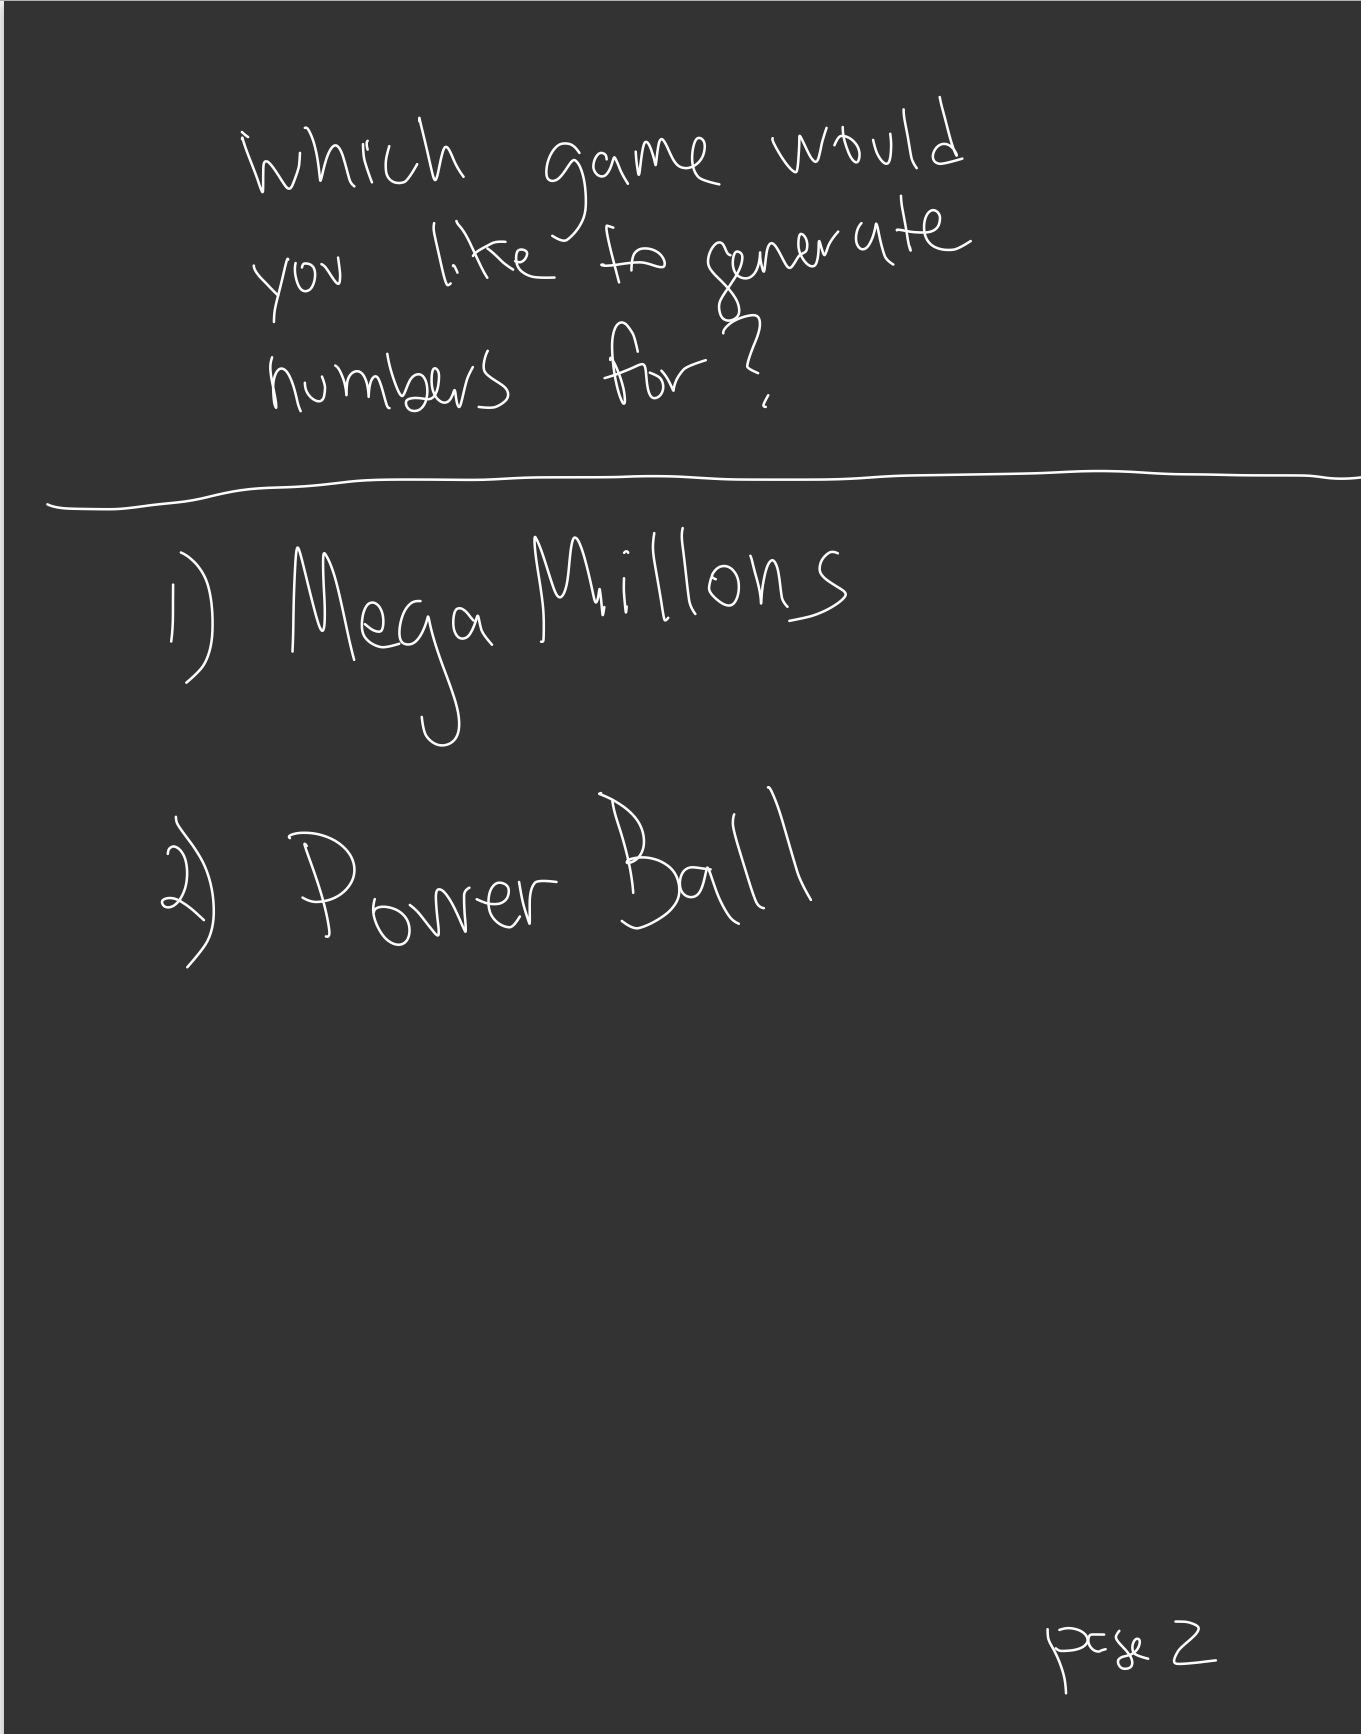 which game would
you like to generate
numbers for?
1) Mega Millons
2) Power Ball
page 2